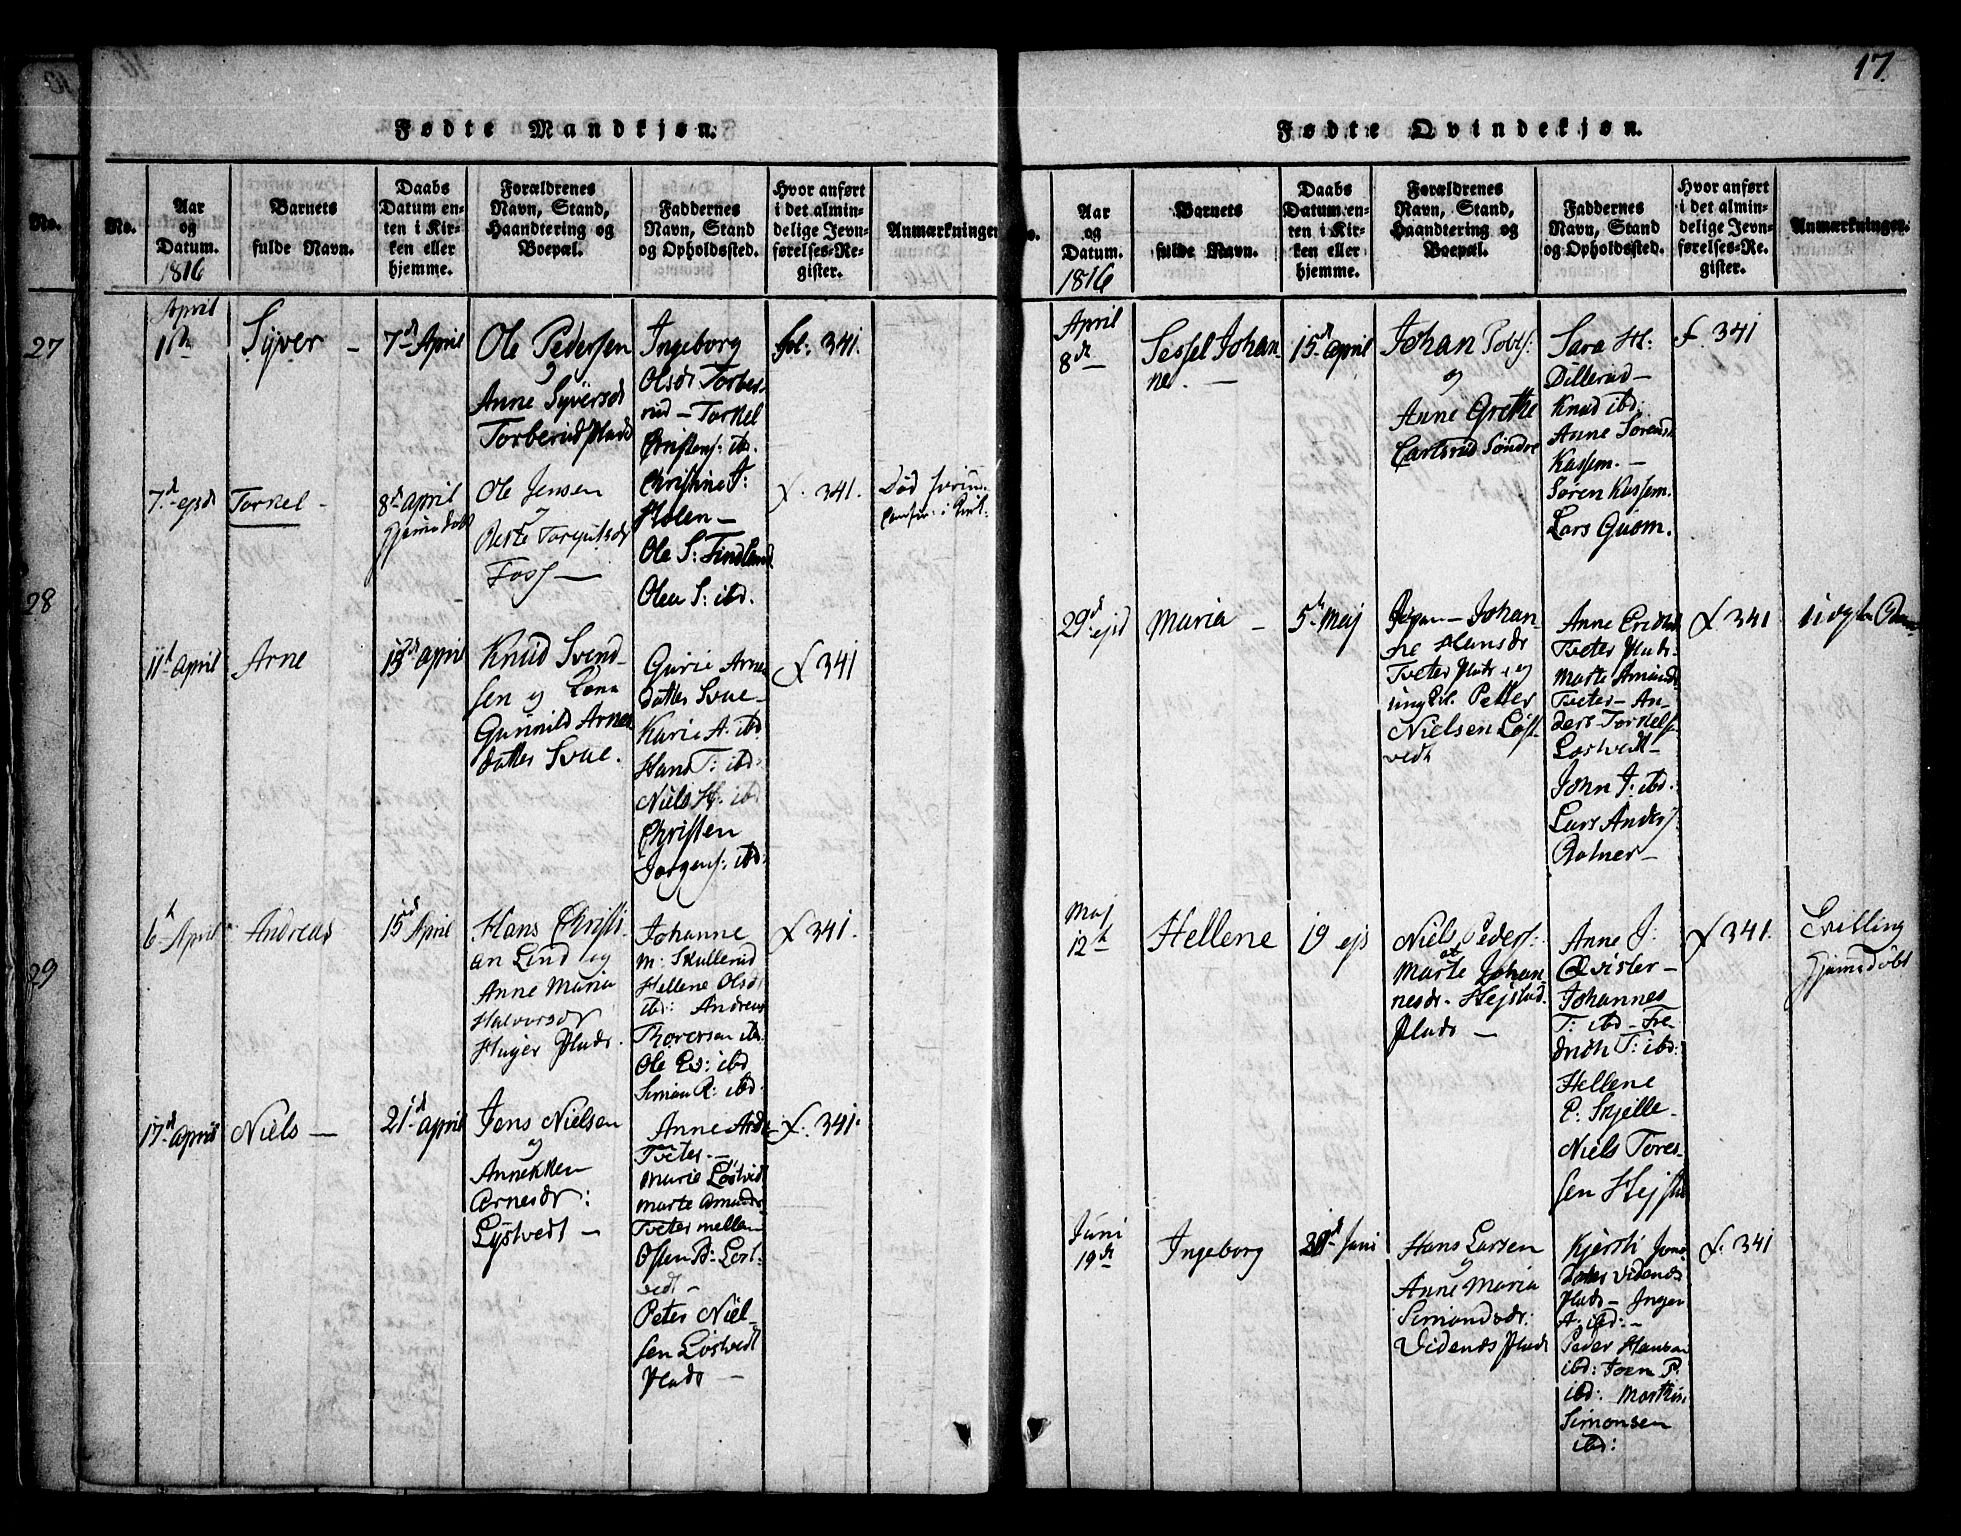 17.
Fødte Mandkjøn.
No.
No.
Aar
og
Datum.
1816
Barnets
fulde Navn.
Daabs
Datum en-
ten i Kir-
ken eller
hjemme.
Forældrenes
Navn, Stand,
Haandtering og
Boepæl.
Faddernes
Navn, Stand
og Opholdssted.
Hvor anført
i det almin-
delige Jevn-
førelses-Re-
gister.
Anmærkninger
27
28
29
April
1te
Syver -
7d April
Ole Pedersen
og
Anne Syversd
Torberud Plads
Ingeborg
Olsdr Torbe-
rud - Torkel
Christens: ibd.
Christine J:
Holen -
Ole S: Findland
Olea S: ibd.
fol: 341.
7d ejsd
Torkel -
8d April
Hjemedøbt
Ole Jensen
og
Torgutsdr
Foss -
f. 341.
Død
11te April
Arne
15d April
Knud Svend-
sen og Kona
Gunnild Arne
datter Svae.
Gurie Arne
datter Svae -
Karie A. ibd.
Hans T: ibd.
Niels H. ibd
Christen
Jorgens: ibd.
f 341
6te April
Andreas
15d April
Hans Christi-
an Lind og
Anne Maria
Halvorsdr
Hager Plads.
Johanne
M: Skullerud
Hellene Olsdr
ibd: Andreas
Thoresen ibd.
Ole Es: ibd
Simon R: ibd.
f 341.
17d April
Niels -
21d April
Jens Nielsen
og
Annekken
Arnesdr:
Lystvedt -
Anne
Tveter -
Marie Løstvedt
Marte Amunds
Tveter mellem
Osten B: Løst-
vedt -
Peter Niel-
sen Løstvedt
Plads -
f. 341.
Fødte Qvindekjøn.
Aar
og
Datum.
1816
Barnets
fulde Navn.
Daabs
Datum en-
ten i Kir-
ken eller
hjemme.
Forældrenes
Navn, Stand,
Haandtering og
Boepæl.
Faddernes
Navn, Stand
og Opholdssted.
Hvor anført
i det almin-
delige Jevn-
førelses-Re-
gister.
Anmærkninger.
April
8de
Sessel Johan-
ne. -
15d April
Johan
og
Anne Grethe
Carlsrud Søndre
Sara H:
Dillerud -
Knud ibd:
Anne Sørensd
Kassem. -
Søren Kassem.
Lars
f. 341
29d ejsd
Maria -
5te Maj
Pigen - Johan-
ne Hansdr
Tveter Plads og
ungkl. Petter
Nielsen Løst-
vedt
Anne
Tveter Plads-
Marte Amunds
Tveter - An-
ders Torkels
Løstvedt -
John J: ibd.
Lars Anders
f 341
uægte
Maj
12te
Hellene
19 ejs
Niels Peders:
et
Marte Johan
nesdr. Hejstad
Plads -
Anne J:
Qvister -
Johannes
T: ibd - Fre-
drich T: ibd:
Hellene
P: Skjelle -
Niels Tores-
sen Hejsta
f 341.
Tvilling
Hjemdøbt
Juni
19de
Ingeborg
Juni
Hans Larsen
og
Anne Maria
Simonsdr:
Vidends Plads
Kjersti Jons
datter Videnes
Plads - Inger
A: ibd: -
Peder Hansen
ibd: Joen P:
ibd: Marthin
Simonsen
ibd:
f. 341